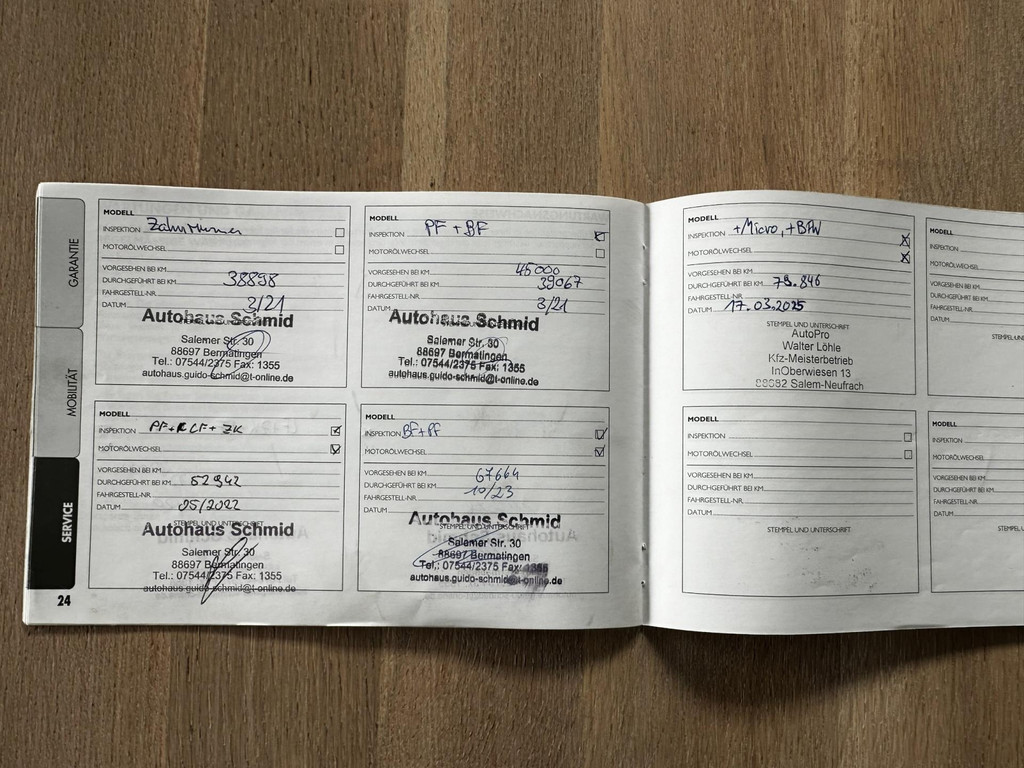 GARANTIE
MOBILITÄT
SERVICE
24
MODELL
INSPEKTION Zahnriemen
MOTORÖLWECHSEL
VORGESEHEN BEI KM
DURCHGEFÜHRT BEI KM 38898
FAHRGESTELL-NR.
DATUM 3/21
Autohaus Schmid
Salemer Str. 30
88697 Bermatingen
Tel.: 07544/2375 Fax: 1355
autohaus.guido-schmid@t-online.de
MODELL
INSPEKTION PF + BF
MOTORÖLWECHSEL
VORGESEHEN BEI KM 45000
DURCHGEFÜHRT BEI KM 39067
FAHRGESTELL-NR.
DATUM 3/21
Autohaus Schmid
Salemer Str. 30
88697 Bermatingen
Tel.: 07544/2375 Fax: 1355
autohaus.guido-schmid@t-online.de
MODELL
INSPEKTION PF + CF + ZK
MOTORÖLWECHSEL
VORGESEHEN BEI KM
DURCHGEFÜHRT BEI KM 52942
FAHRGESTELL-NR.
DATUM 05/2022
STEMPEL UND UNTERSCHRIFT
Autohaus Schmid
Salemer Str. 30
88697 Bermatingen
Tel.: 07544/2375 Fax: 1355
autohaus.guido-schmid@t-online.de
MODELL
INSPEKTION BF + PF
MOTORÖLWECHSEL
VORGESEHEN BEI KM 67664
DURCHGEFÜHRT BEI KM
FAHRGESTELL-NR. 10/23
DATUM
Autohaus Schmid
STEMPEL UND UNTERSCHRIFT
Salemer Str. 30
88697 Bermatingen
Tel.: 07544/2375 Fax: 1355
autohaus.guido-schmid@t-online.de
MODELL
INSPEKTION +Micro, +BFW
MOTORÖLWECHSEL
VORGESEHEN BEI KM
DURCHGEFÜHRT BEI KM 79.846
FAHRGESTELL-NR.
DATUM 17.03.2025
STEMPEL UND UNTERSCHRIFT
AutoPro
Walter Löhle
Kfz-Meisterbetrieb
InOberwiesen 13
88682 Salem-Neufrach
MODELL
INSPEKTION
MOTORÖLWECHSEL
VORGESEHEN BEI KM
DURCHGEFÜHRT BEI KM
FAHRGESTELL-NR.
DATUM
STEMPEL UN
MODELL
INSPEKTION
MOTORÖLWECHSEL
VORGESEHEN BEI KM
DURCHGEFÜHRT BEI KM
FAHRGESTELL-NR.
DATUM
STEMPEL UND UNTERSCHRIFT
MODELL
INSPEKTION
MOTORÖLWECHSEL
VORGESEHEN BEI KM
DURCHGEFÜHRT BEI KM
FAHRGESTELL-NR.
DATUM
STEMPEL